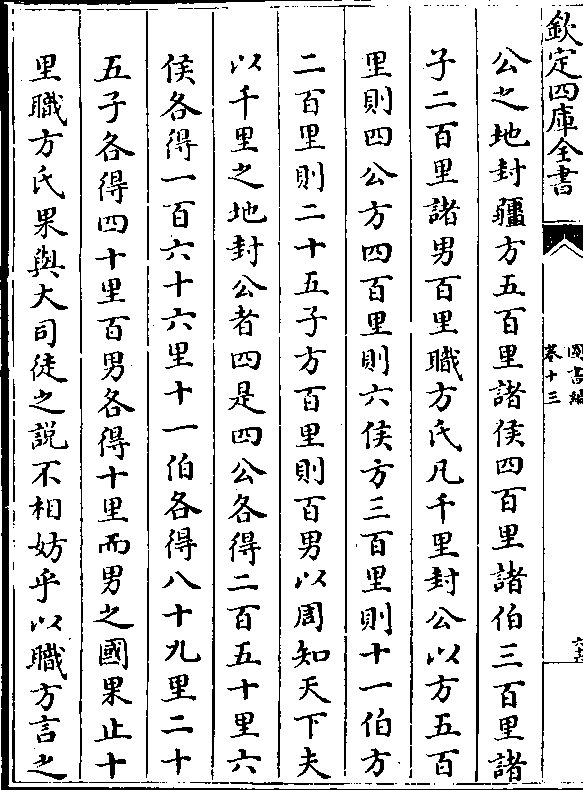 欽定四庫全書
圖書編
卷十三
公之地封疆方五百里諸侯四百里諸伯三百里諸
子二百里諸男百里職方氏凡千里封公以方五百
里則四公方四百里則六侯方三百里則十一伯方
二百里則二十五子方百里則百男以周知天下夫
以千里之地封公者四是四公各得二百五十里六
侯各得一百六十六里十一伯各得八十九里二十
五子各得四十里百男各得十里而男之國果止十
里職方氏果與大司徒之說不相妨乎以職方言之